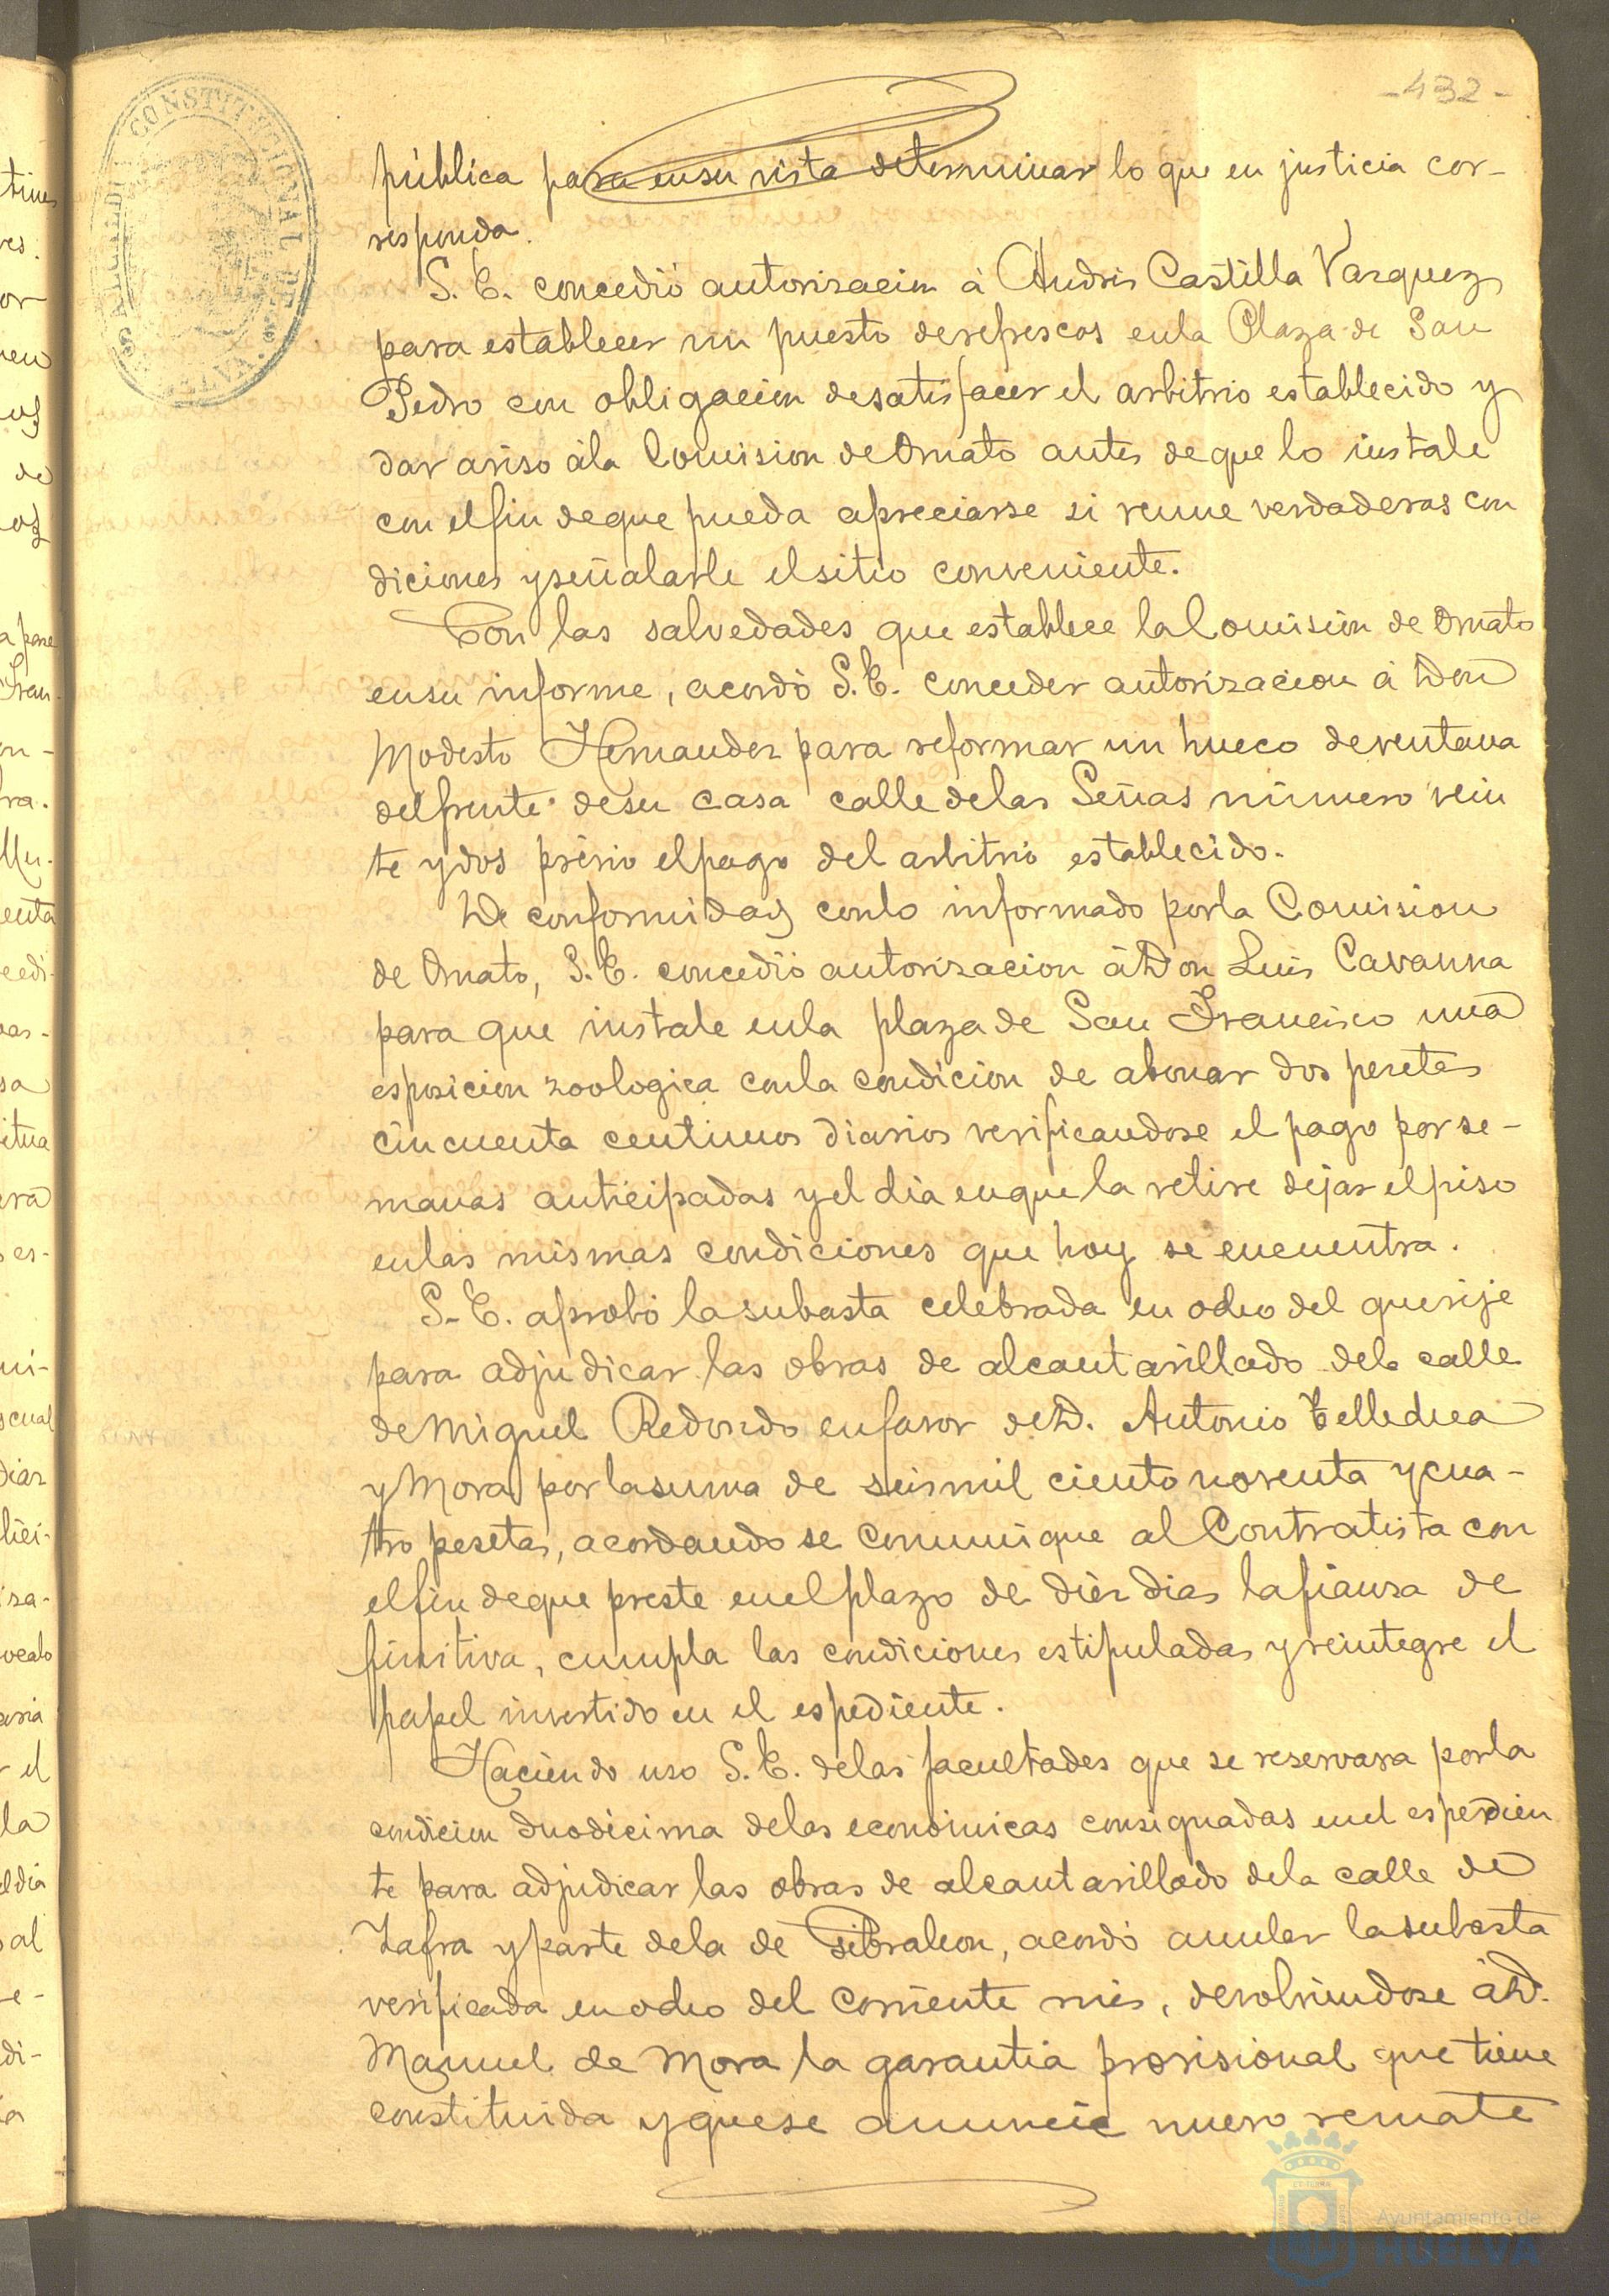 -432-
pública para ensu vista determinar lo que en justicia cor-
responda.
S. E. concedió autorizacion á Andrés Castilla Vazquez
para establecer un puesto derefrescos enla Plaza de San
Pedro con obligacion desatisfacer el arbitrio establecido y
dar aviso ála Comision de Ornato antes deque lo instale
con elfin deque pueda apreciarse si reune verdaderas con
diciones yseñalarle elsitio conveniente.
Con las salvedades que establece laComision de Ornato
ensu informe, acordó S. E. conceder autorizacion á Don
Modesto Hernandez para reformar un hueco deventana
delfrente desu casa calle delas Señas número vein
te ydos prévio elpago del arbitrio establecido.
De conformidad conlo informado porla Comision
de Ornato, S. E. concedió autorizacion áDon Luis Cavanna
para que instale enla plaza de San Francisco una
esposicion zoologica conla condicion de abonar dos pesetas
cincuenta centimos diarios verificandose el pago por se-
manas anticipadas yel dia enque la retire dejar elpiso
enlas mismas condiciones que hoy se encuentra.
S. E. aprobó lasubasta celebrada en ocho del querije
para adjudicar las obras de alcantarillado dela calle
de Miguel Redondo enfavor deD. Antonio Tellechea
y Mora por lasuma de seismil ciento noventa ycua-
tro pesetas, acordando se comunique al Contratista con
elfin deque preste enelplazo de diez dias lafianza de
finitiva, cumpla las condiciones estipuladas yreintegre el
papel invertido en el espediente.
Haciendo uso S. E. delas facultades que se reservara porla
condicion duodécima delas economicas consignadas enel espedien
te para adjudicar las obras de alcantarillado dela calle de
Zafra yparte dela de Gibraleon, acordó anular lasubasta
verificada enocho del corriente mes, devolviendose áD.
Manuel de Mora la garantia provisional que tiene
constituida yquese anuncie nuevo remate
Ayuntamiento de
HUELVA